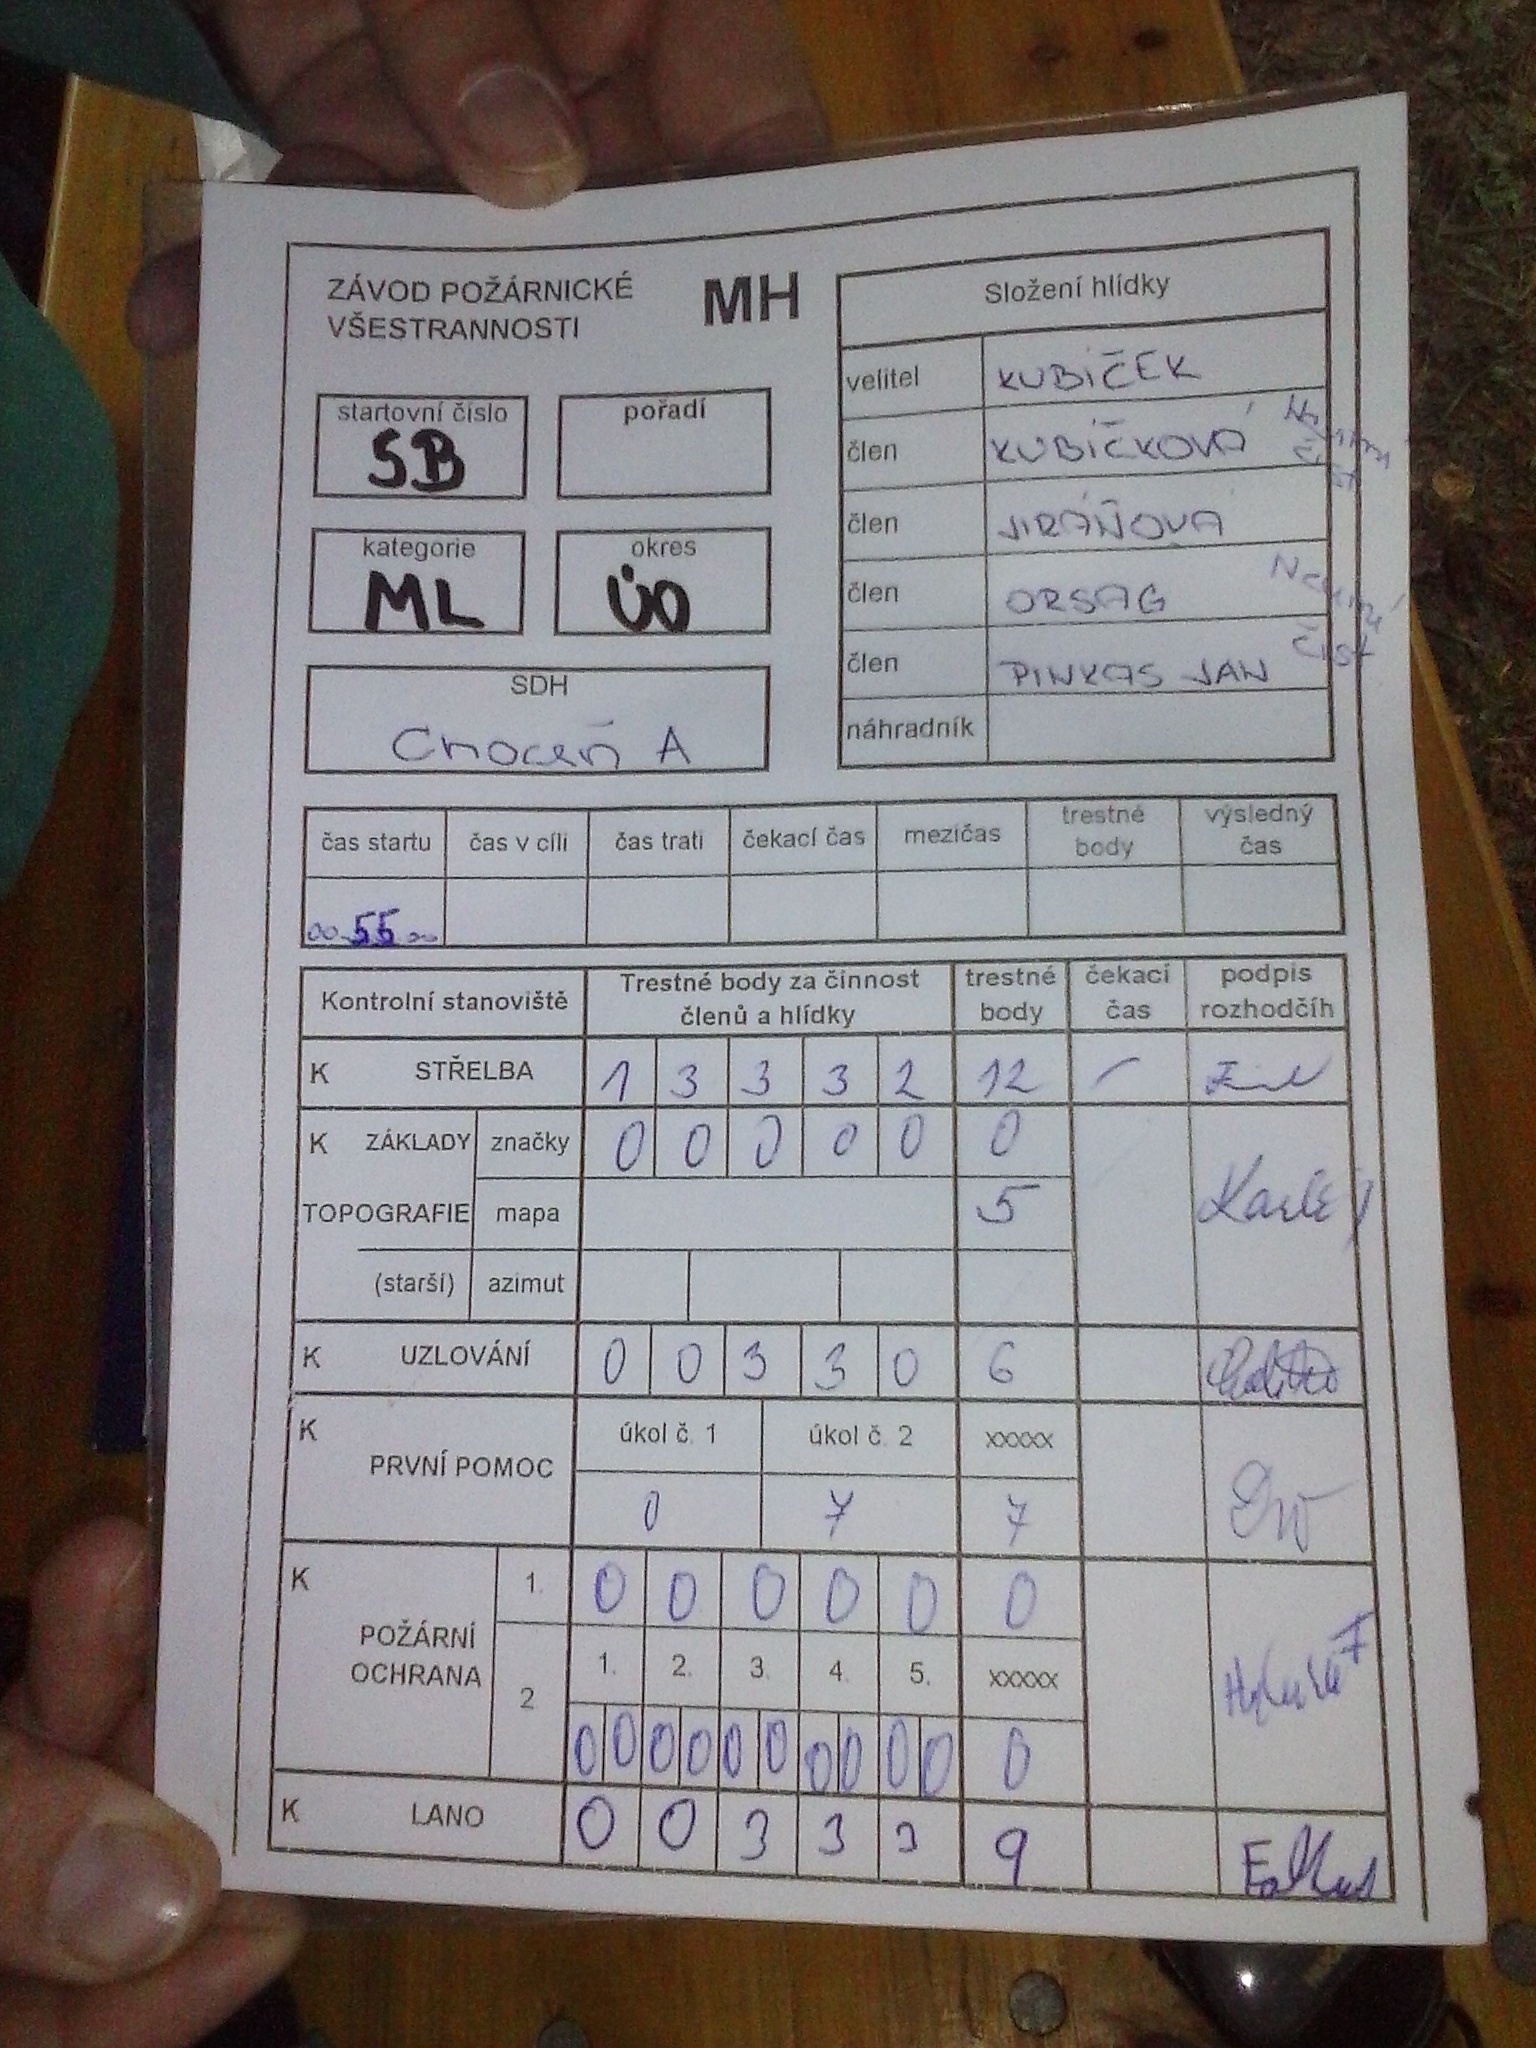 ZÁVOD POŽÁRNICKÉ
VŠESTRANNOSTI
MH
startovní číslo
5B
pořadí
kategorie
ML
okres
ÚO
SDH
Choceň A
Složení hlídky
velitel KUBÍČEK
člen KUBÍČKOVÁ Neumí číst
člen JIRÁŇOVÁ
člen ORSÁG Neumí číst
člen PINKAS JAN
náhradník
čas startu čas v cíli čas trati čekací čas mezičas trestné body výsledný čas
00 55 00
Kontrolní stanoviště Trestné body za činnost členů a hlídky trestné body čekací čas podpis rozhodčíh
K STŘELBA 1 3 3 3 2 12 –
K ZÁKLADY značky 0 0 0 0 0 0
TOPOGRAFIE mapa 5
(starší) azimut
K UZLOVÁNÍ 0 0 3 3 0 6
K PRVNÍ POMOC úkol č. 1 úkol č. 2 xxxxx
0 7 7
K POŽÁRNÍ OCHRANA 1. 0 0 0 0 0 0
2 1. 2. 3. 4. 5. xxxxx
0 0 0 0 0 0 0 0 0 0 0
K LANO 0 0 3 3 3 9